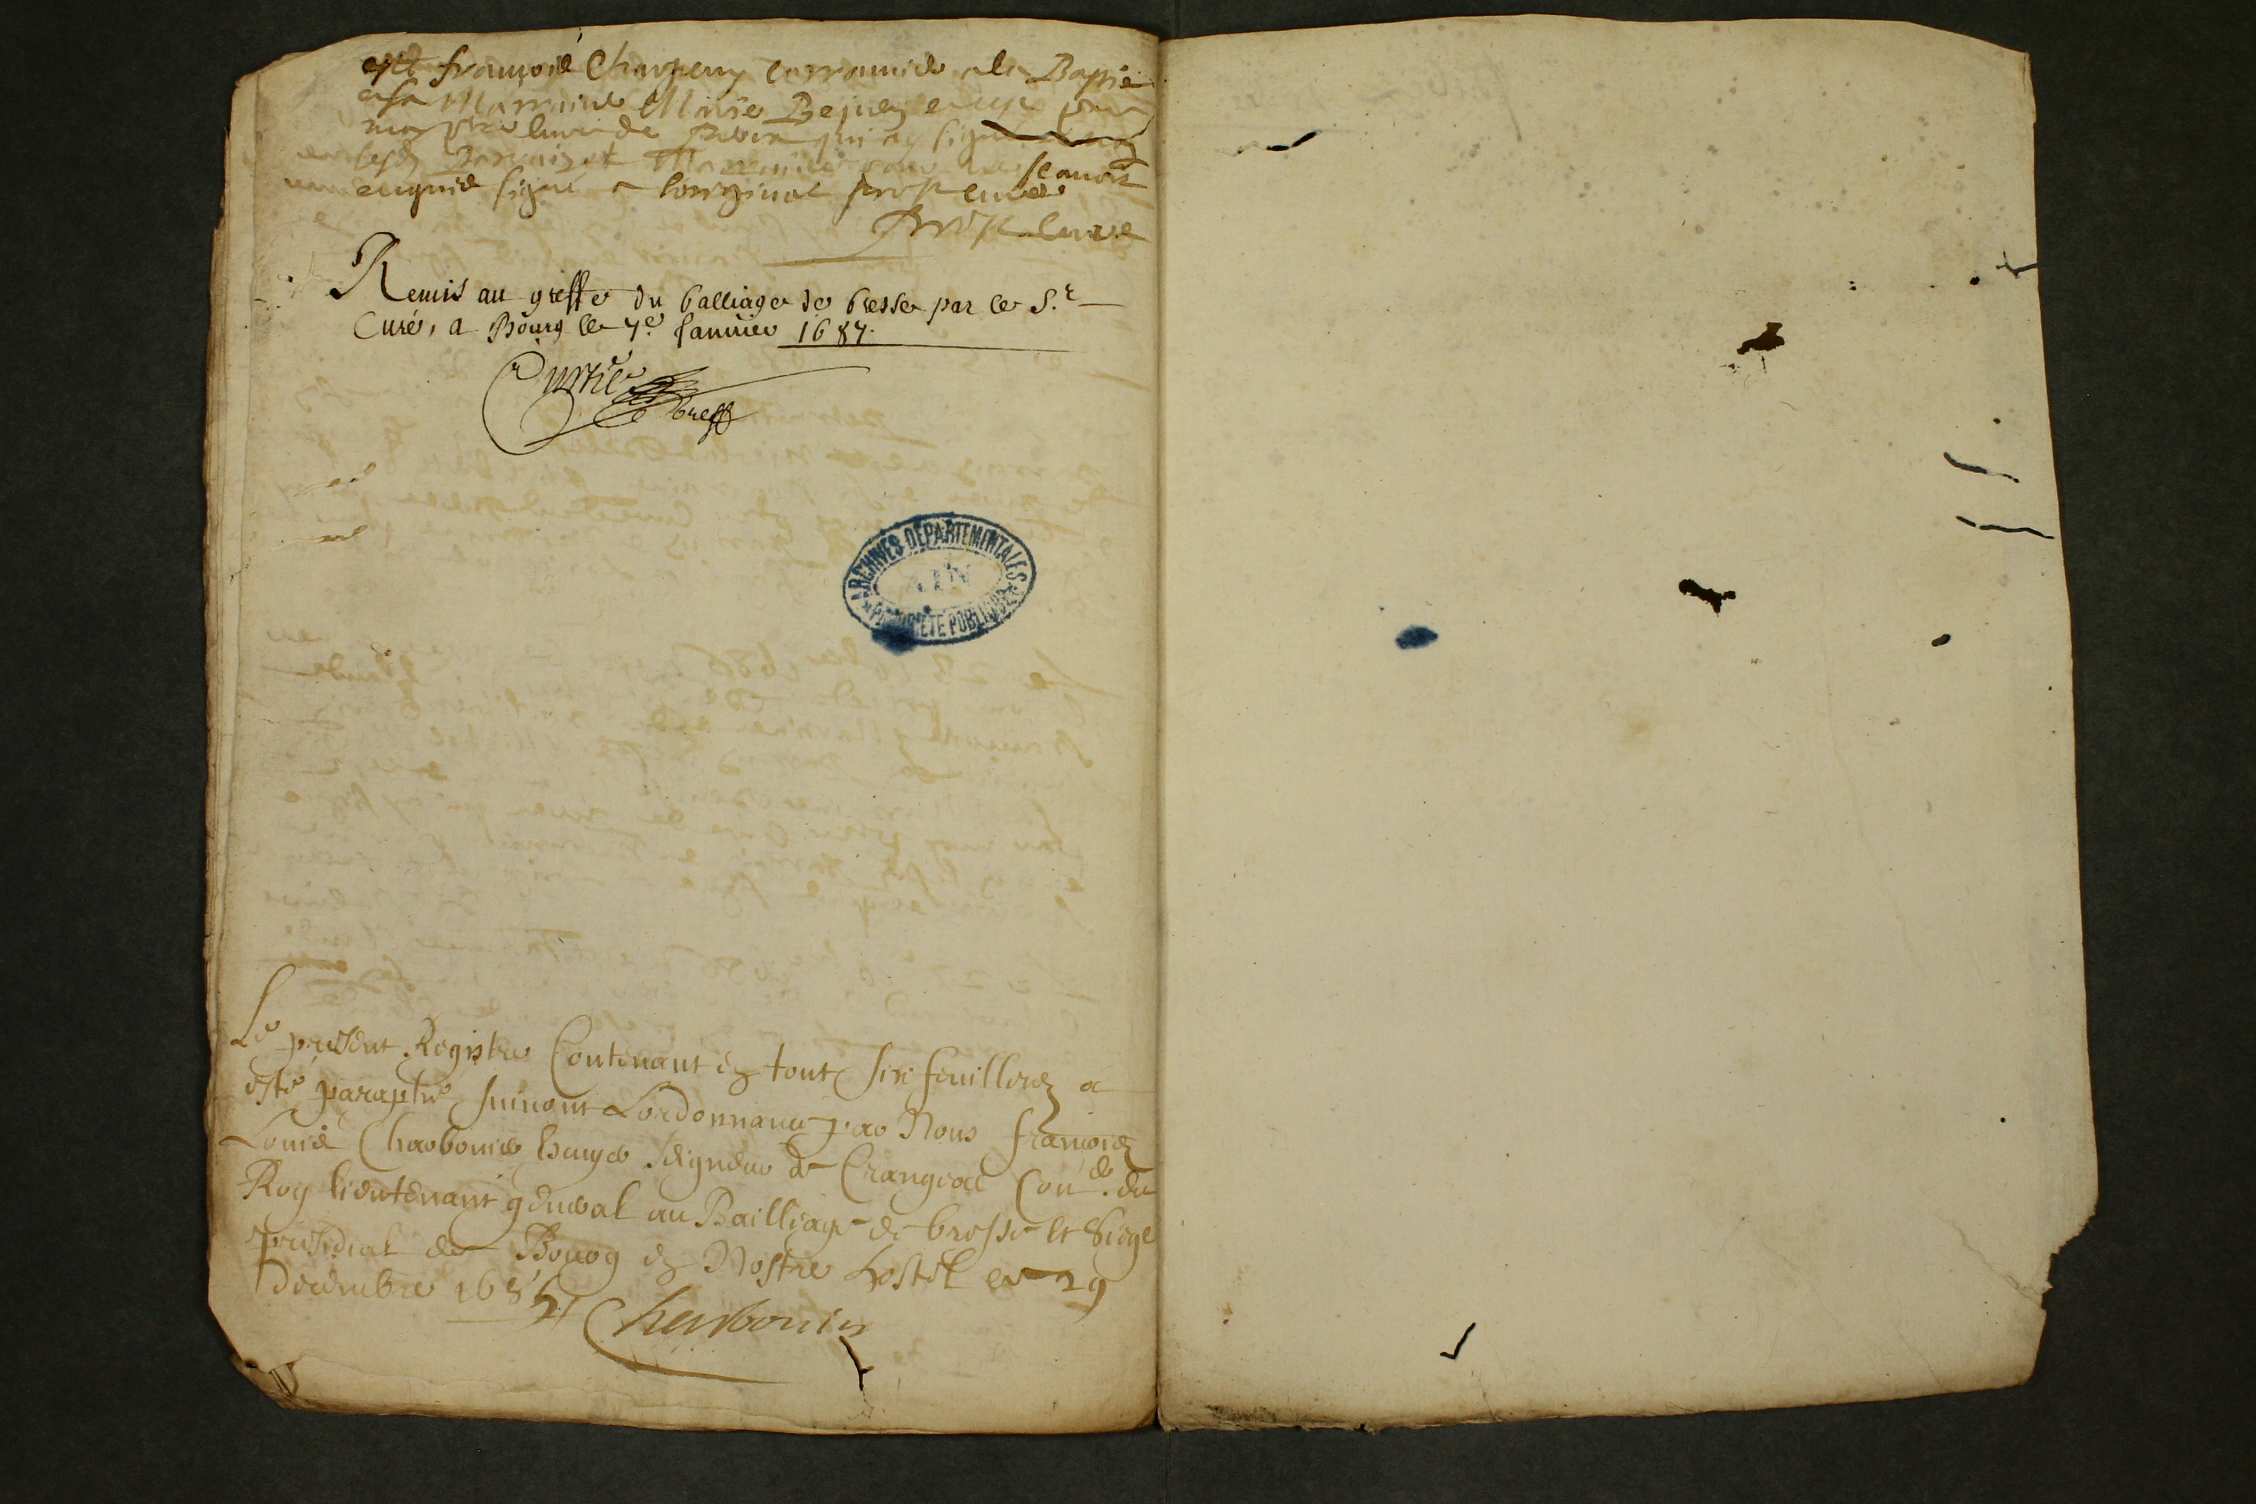 est françois Charpeny le parrain de Baptie
et sa Marraine Marie Bejuey par
moy curé qui ay signé
et Marraine pour ne scavoir
enquis signé a loriginal prost curé
prost curé
Remis au greffe du balliage de bresse par le S.r
Curé, a Bourg le 7e. Janvier 1687.
greff
ARCHIVES DÉPARTEMENTALES
AIN
PROPRIÉTÉ PUBLIQUE
Le present Registre Contenant en tout six feuillets a
esté paraphé suivant Lordonnance par Nous françois
Louis Charbonier Escuyer Seigneur de Crangeac Con.er du
Roy lieutenant general au Bailliage de bresse et Siege
presidial de Bourg en Nostre hostel le 29
decembre 1685
Charbonier